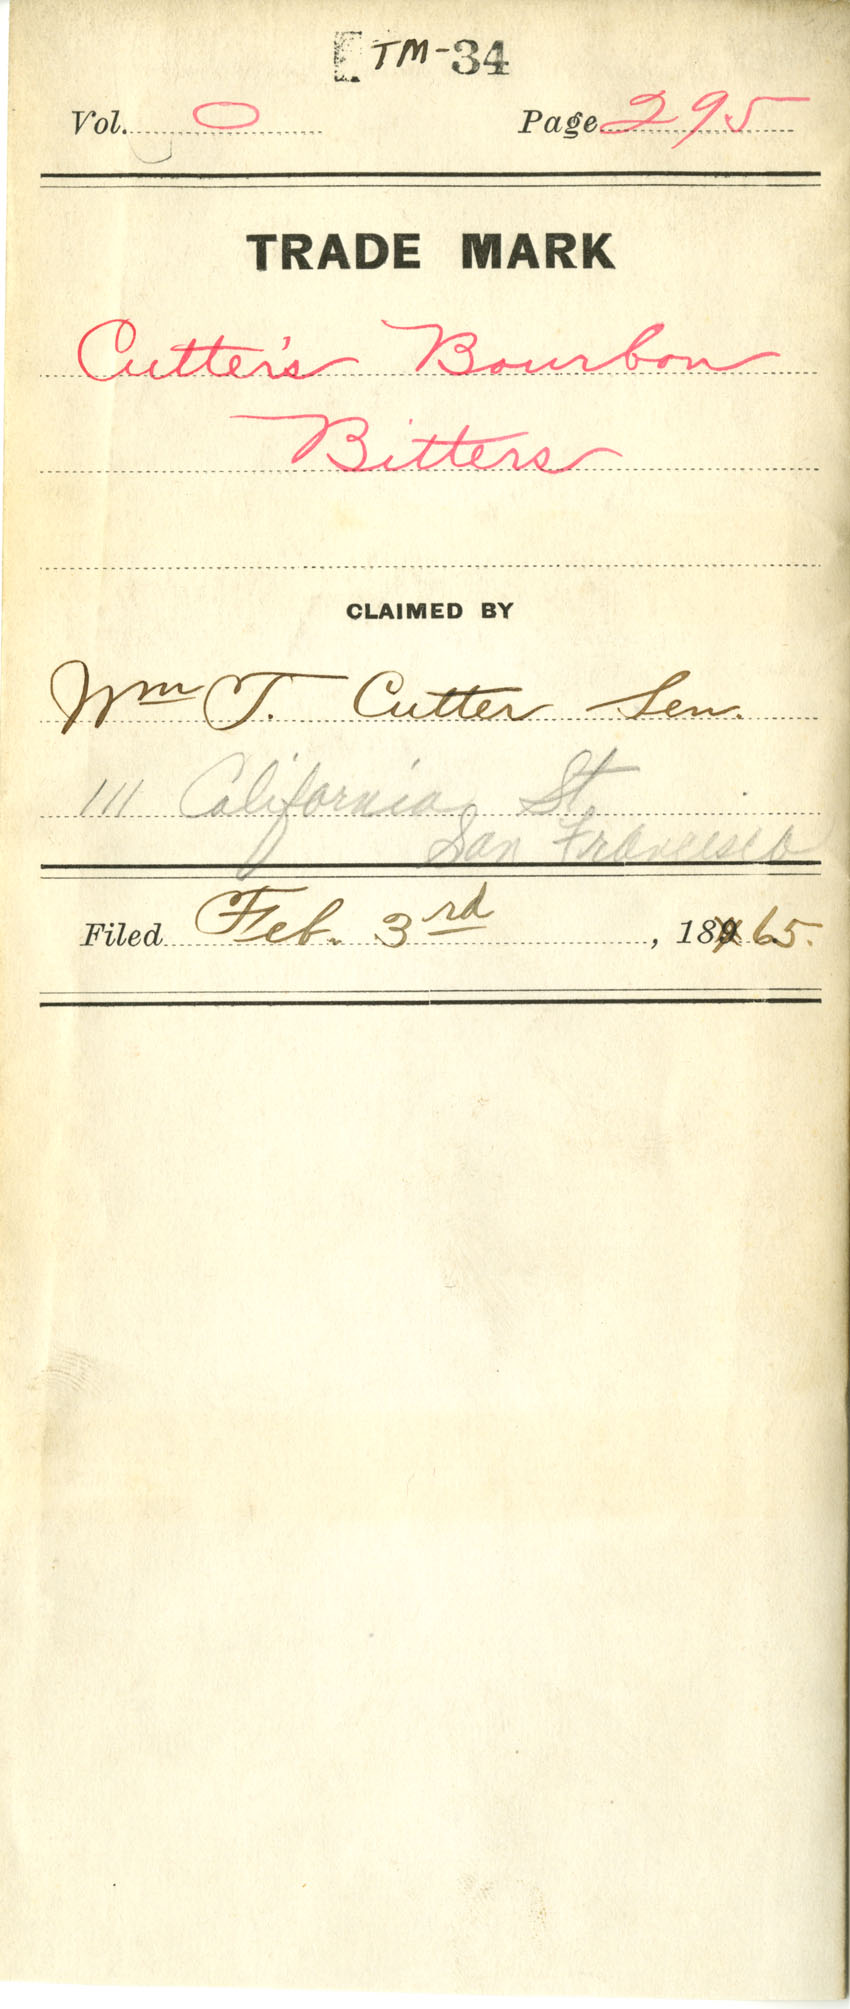 TM-34
Vol. 0 Page 295
TRADE MARK
Cutter's Bourbon
Bitters
CLAIMED BY
Wm T. Cutter Sen.
111 California St.
San Francisco
Filed Feb. 3rd, 1865.